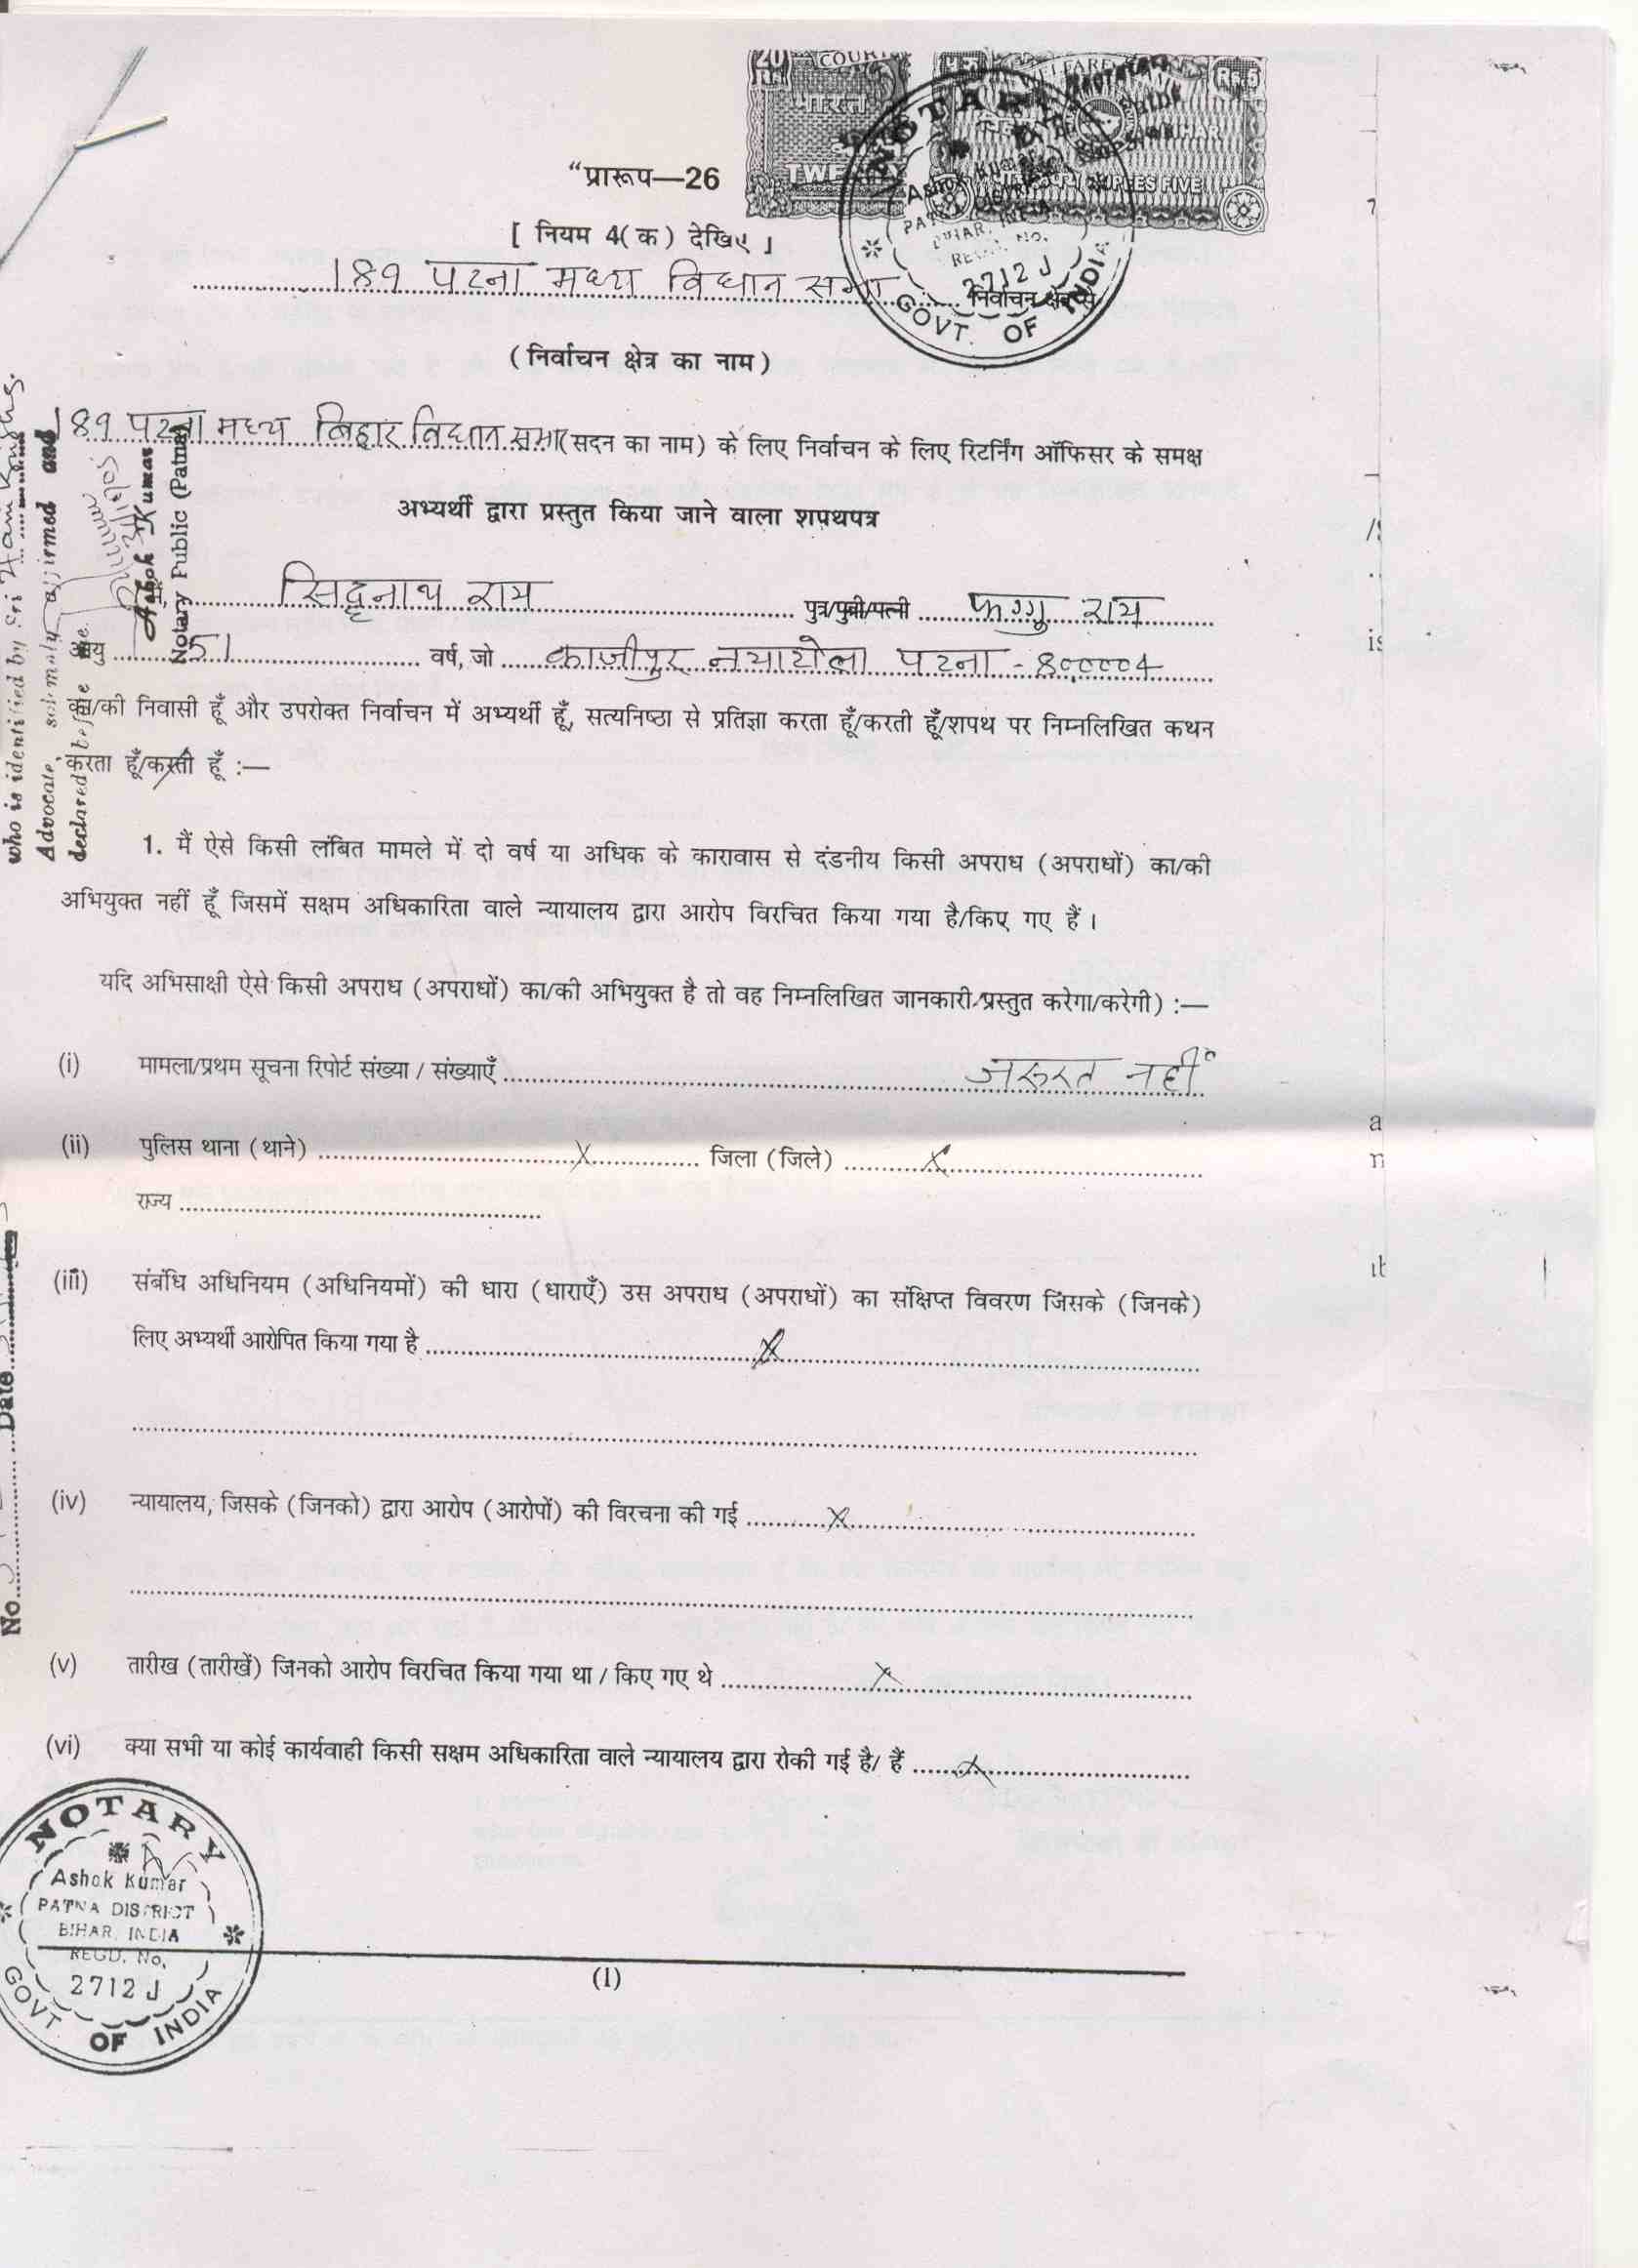 20 COURT
भारत
TWENTY
Rs.5
WELFARE
BIHAR
RUPEES FIVE
NOTARY
Ashok Kumar
PATNA DISTRICT
BIHAR, INDIA
REGD. No.
2712 J
GOVT. OF INDIA
“प्रारूप—26
[ नियम 4(क) देखिए ]
189 पटना मध्य विधान सभा निर्वाचन क्षेत्र से
(निर्वाचन क्षेत्र का नाम)
189 पटना मध्य बिहार विधान सभा (सदन का नाम) के लिए निर्वाचन के लिए रिटर्निंग ऑफिसर के समक्ष
अभ्यर्थी द्वारा प्रस्तुत किया जाने वाला शपथपत्र
सिद्धनाथ राय पुत्र/पुत्री/पत्नी फग्गु राय
आयु 51 वर्ष, जो काजीपुर नयाटोला पटना - 800004
का/की निवासी हूँ और उपरोक्त निर्वाचन में अभ्यर्थी हूँ, सत्यनिष्ठा से प्रतिज्ञा करता हूँ/करती हूँ/शपथ पर निम्नलिखित कथन
करता हूँ/करती हूँ :—
1. मैं ऐसे किसी लंबित मामले में दो वर्ष या अधिक के कारावास से दंडनीय किसी अपराध (अपराधों) का/की
अभियुक्त नहीं हूँ जिसमें सक्षम अधिकारिता वाले न्यायालय द्वारा आरोप विरचित किया गया है/किए गए हैं ।
यदि अभिसाक्षी ऐसे किसी अपराध (अपराधों) का/की अभियुक्त है तो वह निम्नलिखित जानकारी प्रस्तुत करेगा/करेगी) :—
(i) मामला/प्रथम सूचना रिपोर्ट संख्या / संख्याएँ जरूरत नहीं
(ii) पुलिस थाना (थाने) X जिला (जिले) X
राज्य
(iii) संबंधि अधिनियम (अधिनियमों) की धारा (धाराएँ) उस अपराध (अपराधों) का संक्षिप्त विवरण जिसके (जिनके)
लिए अभ्यर्थी आरोपित किया गया है X
(iv) न्यायालय, जिसके (जिनको) द्वारा आरोप (आरोपों) की विरचना की गई X
(v) तारीख (तारीखें) जिनको आरोप विरचित किया गया था / किए गए थे X
(vi) क्या सभी या कोई कार्यवाही किसी सक्षम अधिकारिता वाले न्यायालय द्वारा रोकी गई है/ हैं X
(1)
who is identified by Sri
Advocate, solemnly affirmed and
declared before me.
Ashok Kumar
Notary Public (Patna)
No. Date
NOTARY
Ashok Kumar
PATNA DISTRICT
BIHAR, INDIA
REGD. No.
2712 J
GOVT. OF INDIA